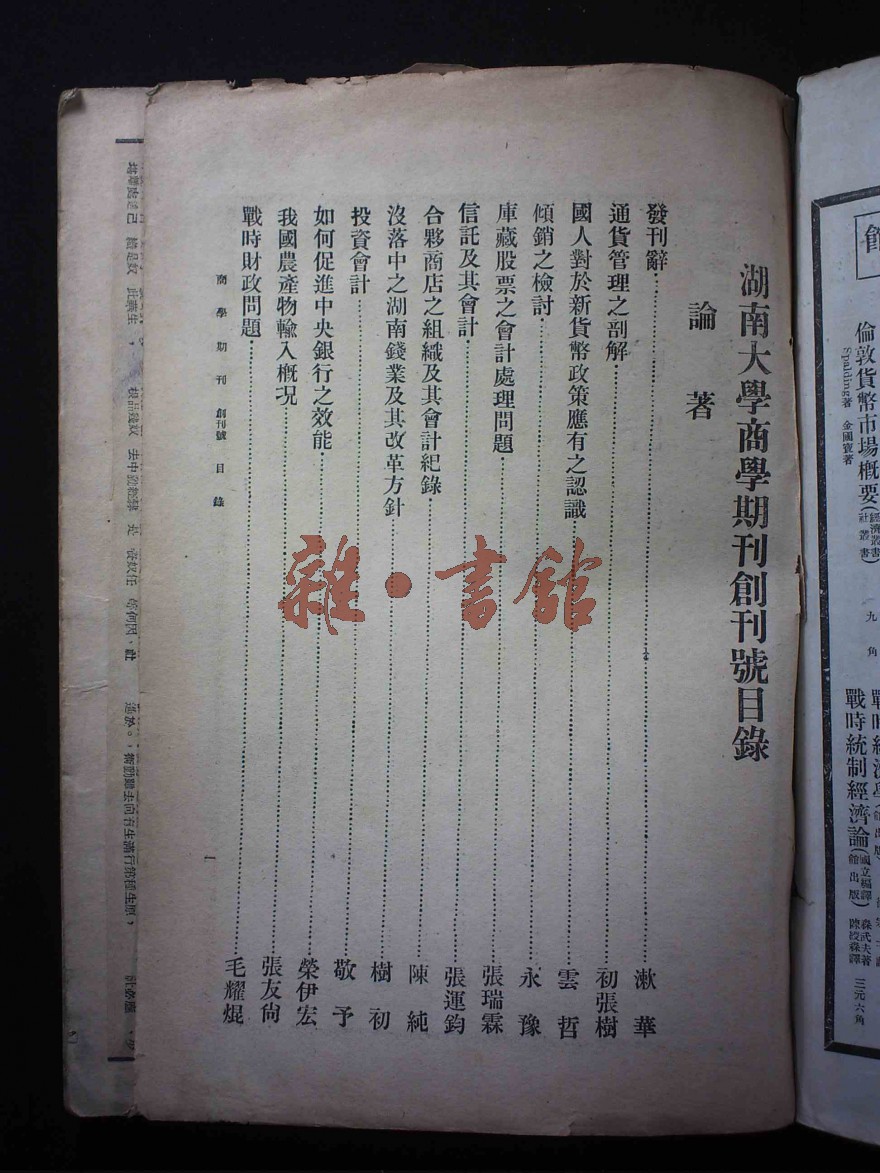 湖南大學商學期刊創刊號目錄
論著
發刊辭 漱華
通貨管理之剖解 初張樹
國人對於新貨幣政策應有之認識 雲哲
傾銷之檢討 永豫
庫藏股票之會計處理問題 張瑞霖
信託及其會計 張運鈞
合夥商店之組織及其會計紀錄 陳純
沒落中之湖南錢業及其改革方針 樹初
投資會計 敬予
如何促進中央銀行之效能 榮伊宏
我國農產物輸入概況 張友尙
戰時財政問題 毛耀焜
商學期刊 創刊號 目錄
一
雜·書館
館
倫敦貨幣市場概要(經濟叢書社叢書)
Spalding著 金國寶著
九角
戰時統制經濟論(國立編譯館出版) 森武夫著 陳綬蓀譯 三元六角